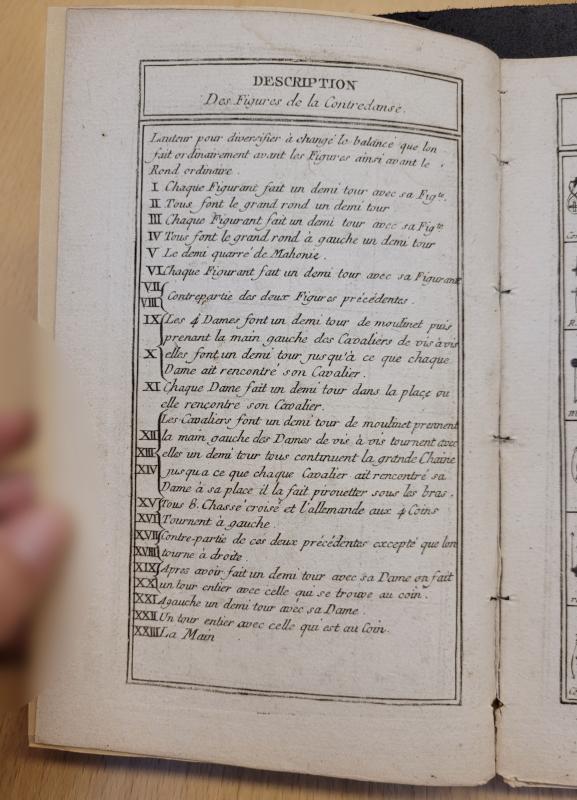 DESCRIPTION
Des Figures de la Contredanse.
L'auteur pour diversifier à changé le balancé que l'on
fait ordinairement avant les Figures ainsi avant le
Rond ordinaire.
I Chaque Figurant fait un demi tour avec sa Fig.te
II Tous font le grand rond un demi tour
III Chaque Figurant fait un demi tour avec sa Fig.te
IV Tous font le grand rond à gauche un demi tour
V Le demi quarré de Mahonie.
VI Chaque Figurant fait un demi tour avec sa Figurant
VII
VIII Contrepartie des deux Figures précédentes.
IX Les 4 Dames font un demi tour de moulinet puis
prenant la main gauche des Cavaliers de vis à vis
X elles font un demi tour jusqu'à ce que chaque
Dame ait rencontré son Cavalier.
XI Chaque Dame fait un demi tour dans la place ou
elle rencontre son Cavalier.
Les Cavaliers font un demi tour de moulinet prennent
XII la main gauche des Dames de vis à vis tournent avec
XIII elles un demi tour tous continuent la grande Chaine
XIV jusqu'a ce que chaque Cavalier ait rencontré sa
Dame à sa place il la fait pirouetter sous les bras.
XV Tous 8. Chassé croisé et l'allemande aux 4 Coins
XVI Tournent à gauche.
XVII Contre-partie de ces deux précédentes excepté que l'on
XVIII tourne à droite.
XIX Apres avoir fait un demi tour avec sa Dame on fait
XX un tour entier avec celle qui se trouve au coin.
XXI Agauche un demi tour avec sa Dame.
XXII Un tour entier avec celle qui est au Coin.
XXIII La Main